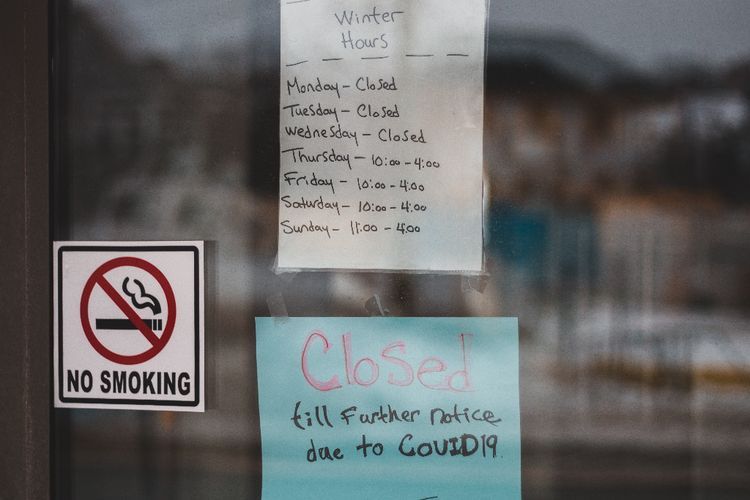 Winter
Hours
Monday - Closed
Tuesday - Closed
Wednesday - Closed
Thursday - 10:00 - 4:00
Friday - 10:00 - 4:00
Saturday - 10:00 - 4:00
Sunday - 11:00 - 4:00
NO SMOKING
Closed
till Further notice
due to COVID19